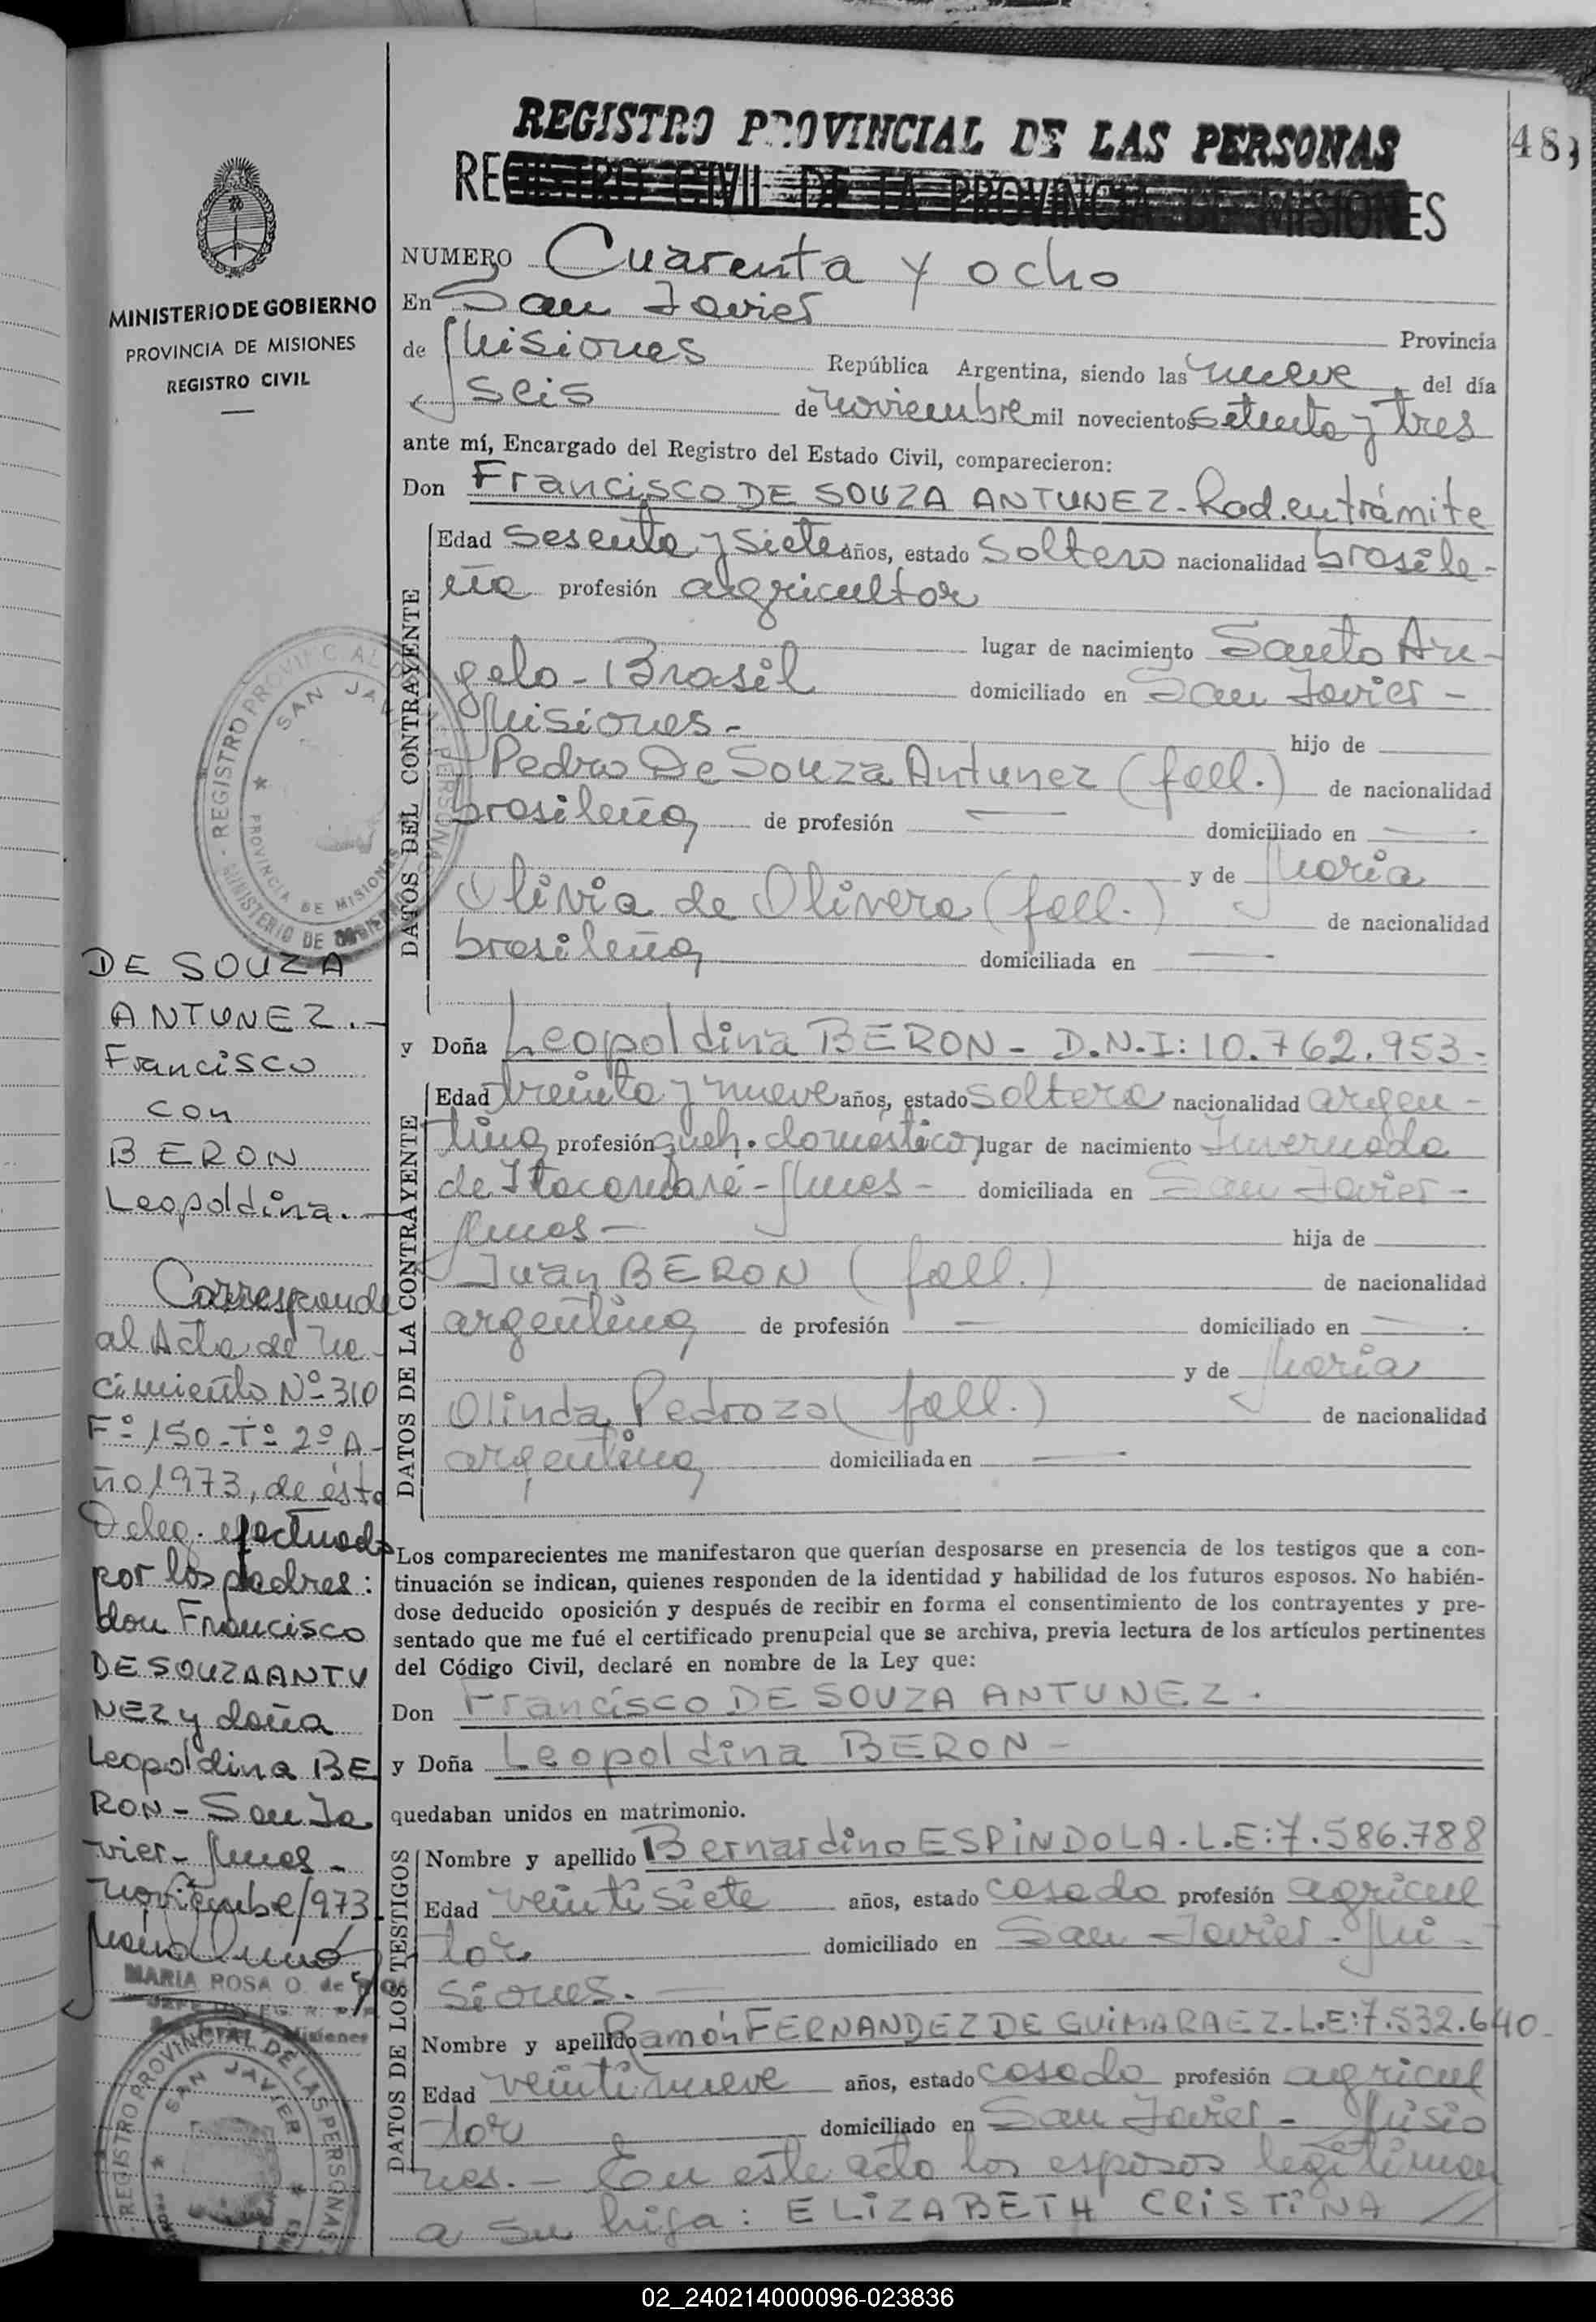 REGISTRO PROVINCIAL DE LAS PERSONAS
48
REGISTRO CIVIL DE LA PROVINCIA DE MISIONES
MINISTERIO DE GOBIERNO
PROVINCIA DE MISIONES
REGISTRO CIVIL
NUMERO Cuarenta y ocho
En San Javier
Provincia
de Misiones República Argentina, siendo las nueve del día
seis de noviembre mil novecientos setenta y tres
ante mí, Encargado del Registro del Estado Civil, comparecieron:
Don Francisco DE SOUZA ANTUNEZ - Rad. en trámite
DATOS DEL CONTRAYENTE
Edad sesenta y siete años, estado soltero nacionalidad brasile-
ña profesión agricultor
lugar de nacimiento Santo An-
gelo - Brasil domiciliado en San Javier -
Misiones - hijo de
Pedro De Souza Antunez (fall.) de nacionalidad
brasileña de profesión — domiciliado en —
y de María
Olivia de Olivera (fall.) de nacionalidad
brasileña domiciliada en —
y Doña Leopoldina BERON - D.N.I: 10.762.953-
DATOS DE LA CONTRAYENTE
Edad treinta y nueve años, estado soltera nacionalidad argen-
tina profesión queh. domésticos lugar de nacimiento Invernada
de Itacaruaré - Mnes - domiciliada en San Javier -
Mnes - hija de
Juan BERON (fall.) de nacionalidad
argentina de profesión — domiciliado en —
y de María
Olinda Pedrozo (fall.) de nacionalidad
argentina domiciliada en —
Los comparecientes me manifestaron que querían desposarse en presencia de los testigos que a con-
tinuación se indican, quienes responden de la identidad y habilidad de los futuros esposos. No habién-
dose deducido oposición y después de recibir en forma el consentimiento de los contrayentes y pre-
sentado que me fué el certificado prenupcial que se archiva, previa lectura de los artículos pertinentes
del Código Civil, declaré en nombre de la Ley que:
Don Francisco DE SOUZA ANTUNEZ.
y Doña Leopoldina BERON -
quedaban unidos en matrimonio.
DATOS DE LOS TESTIGOS
Nombre y apellido Bernardino ESPINDOLA. L.E: 7.586.788
Edad veintisiete años, estado casado profesión agricul
tor domiciliado en San Javier - Mi -
siones. —
Nombre y apellido Ramón FERNANDEZ DE GUIMARAEZ. L.E: 7.532.640-
Edad veintinueve años, estado casado profesión agricul
tor domiciliado en San Javier - Misio
nes. - En este acto los esposos legitiman
a su hija: ELIZABETH CRISTINA //
DE SOUZA
ANTUNEZ. -
Francisco
con
BERON
Leopoldina. -
Corresponde
al Acta de Na-
cimiento Nº 310
Fº 150 - Tº 2º A-
ño 1973, de ésta
Deleg. efectuada
por los padres:
don Francisco
DE SOUZA ANTU
NEZ y doña
Leopoldina BE
RON - San Ja
vier - Mnes -
noviembre/973
MARIA ROSA O. de
Misiones
REGISTRO PROVINCIAL DE LAS PERSONAS
SAN JAVIER
PROVINCIA DE MISIONES
MINISTERIO DE GOBIERNO
REGISTRO PROVINCIAL DE LAS PERSONAS
SAN JAVIER
02_240214000096-023836